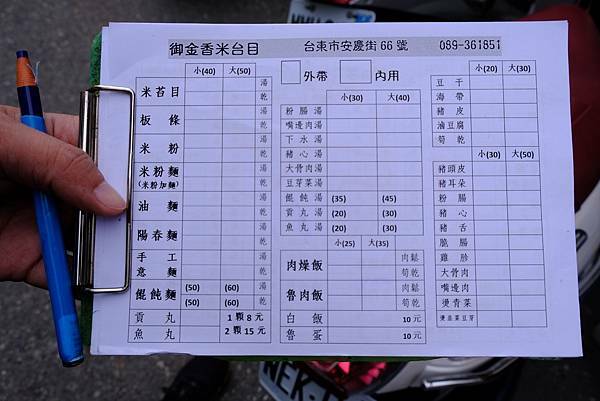 御金香米台目 台東市安慶街66號 089-361851
小(40) 大(50)
米苔目 湯
乾
板條 湯
乾
米粉 湯
乾
米粉麵 湯
(米粉加麵) 乾
油麵 湯
乾
陽春麵 湯
乾
手工 湯
意麵 乾
餛飩麵 (50) (60) 湯
(50) (60) 乾
貢丸 1顆8元
魚丸 2顆15元
外帶 內用
小(30) 大(40)
粉腸湯
嘴邊肉湯
下水湯
豬心湯
大骨肉湯
豆芽菜湯
餛飩湯 (35) (45)
貢丸湯 (20) (30)
魚丸湯 (20) (30)
小(25) 大(35)
肉燥飯 肉鬆
筍乾
魯肉飯 肉鬆
筍乾
白飯 10元
魯蛋 10元
小(20) 大(30)
豆干
海帶
豬皮
滷豆腐
筍乾
小(30) 大(50)
豬頭皮
豬耳朵
粉腸
豬心
豬舌
脆腸
雞胗
大骨肉
嘴邊肉
燙青菜
燙韭菜豆芽